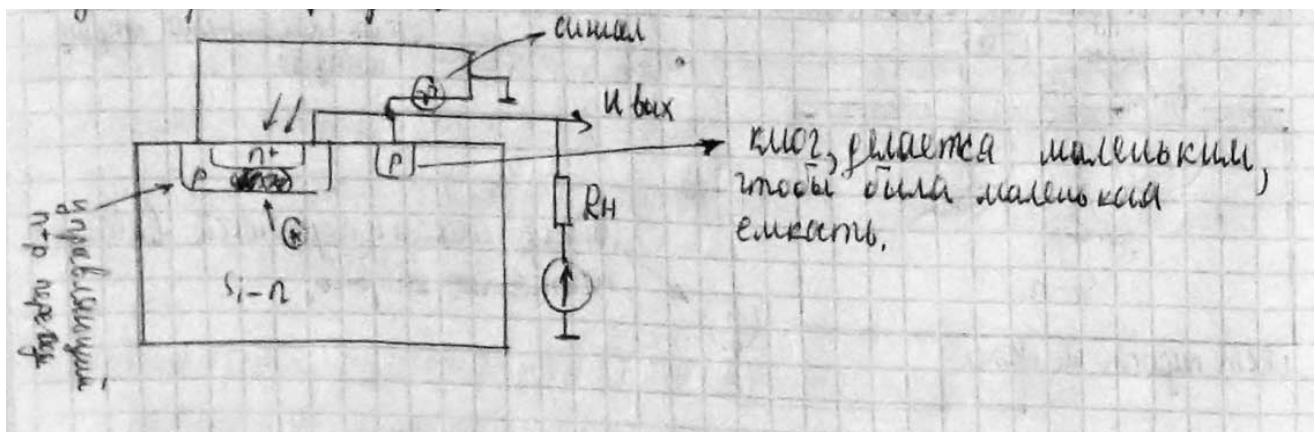 сигнал
U вых
n+
p
p
ключ, делается маленьким,
чтобы была маленькая
емкость.
Rн
Si-n
управляющий
n+p переход